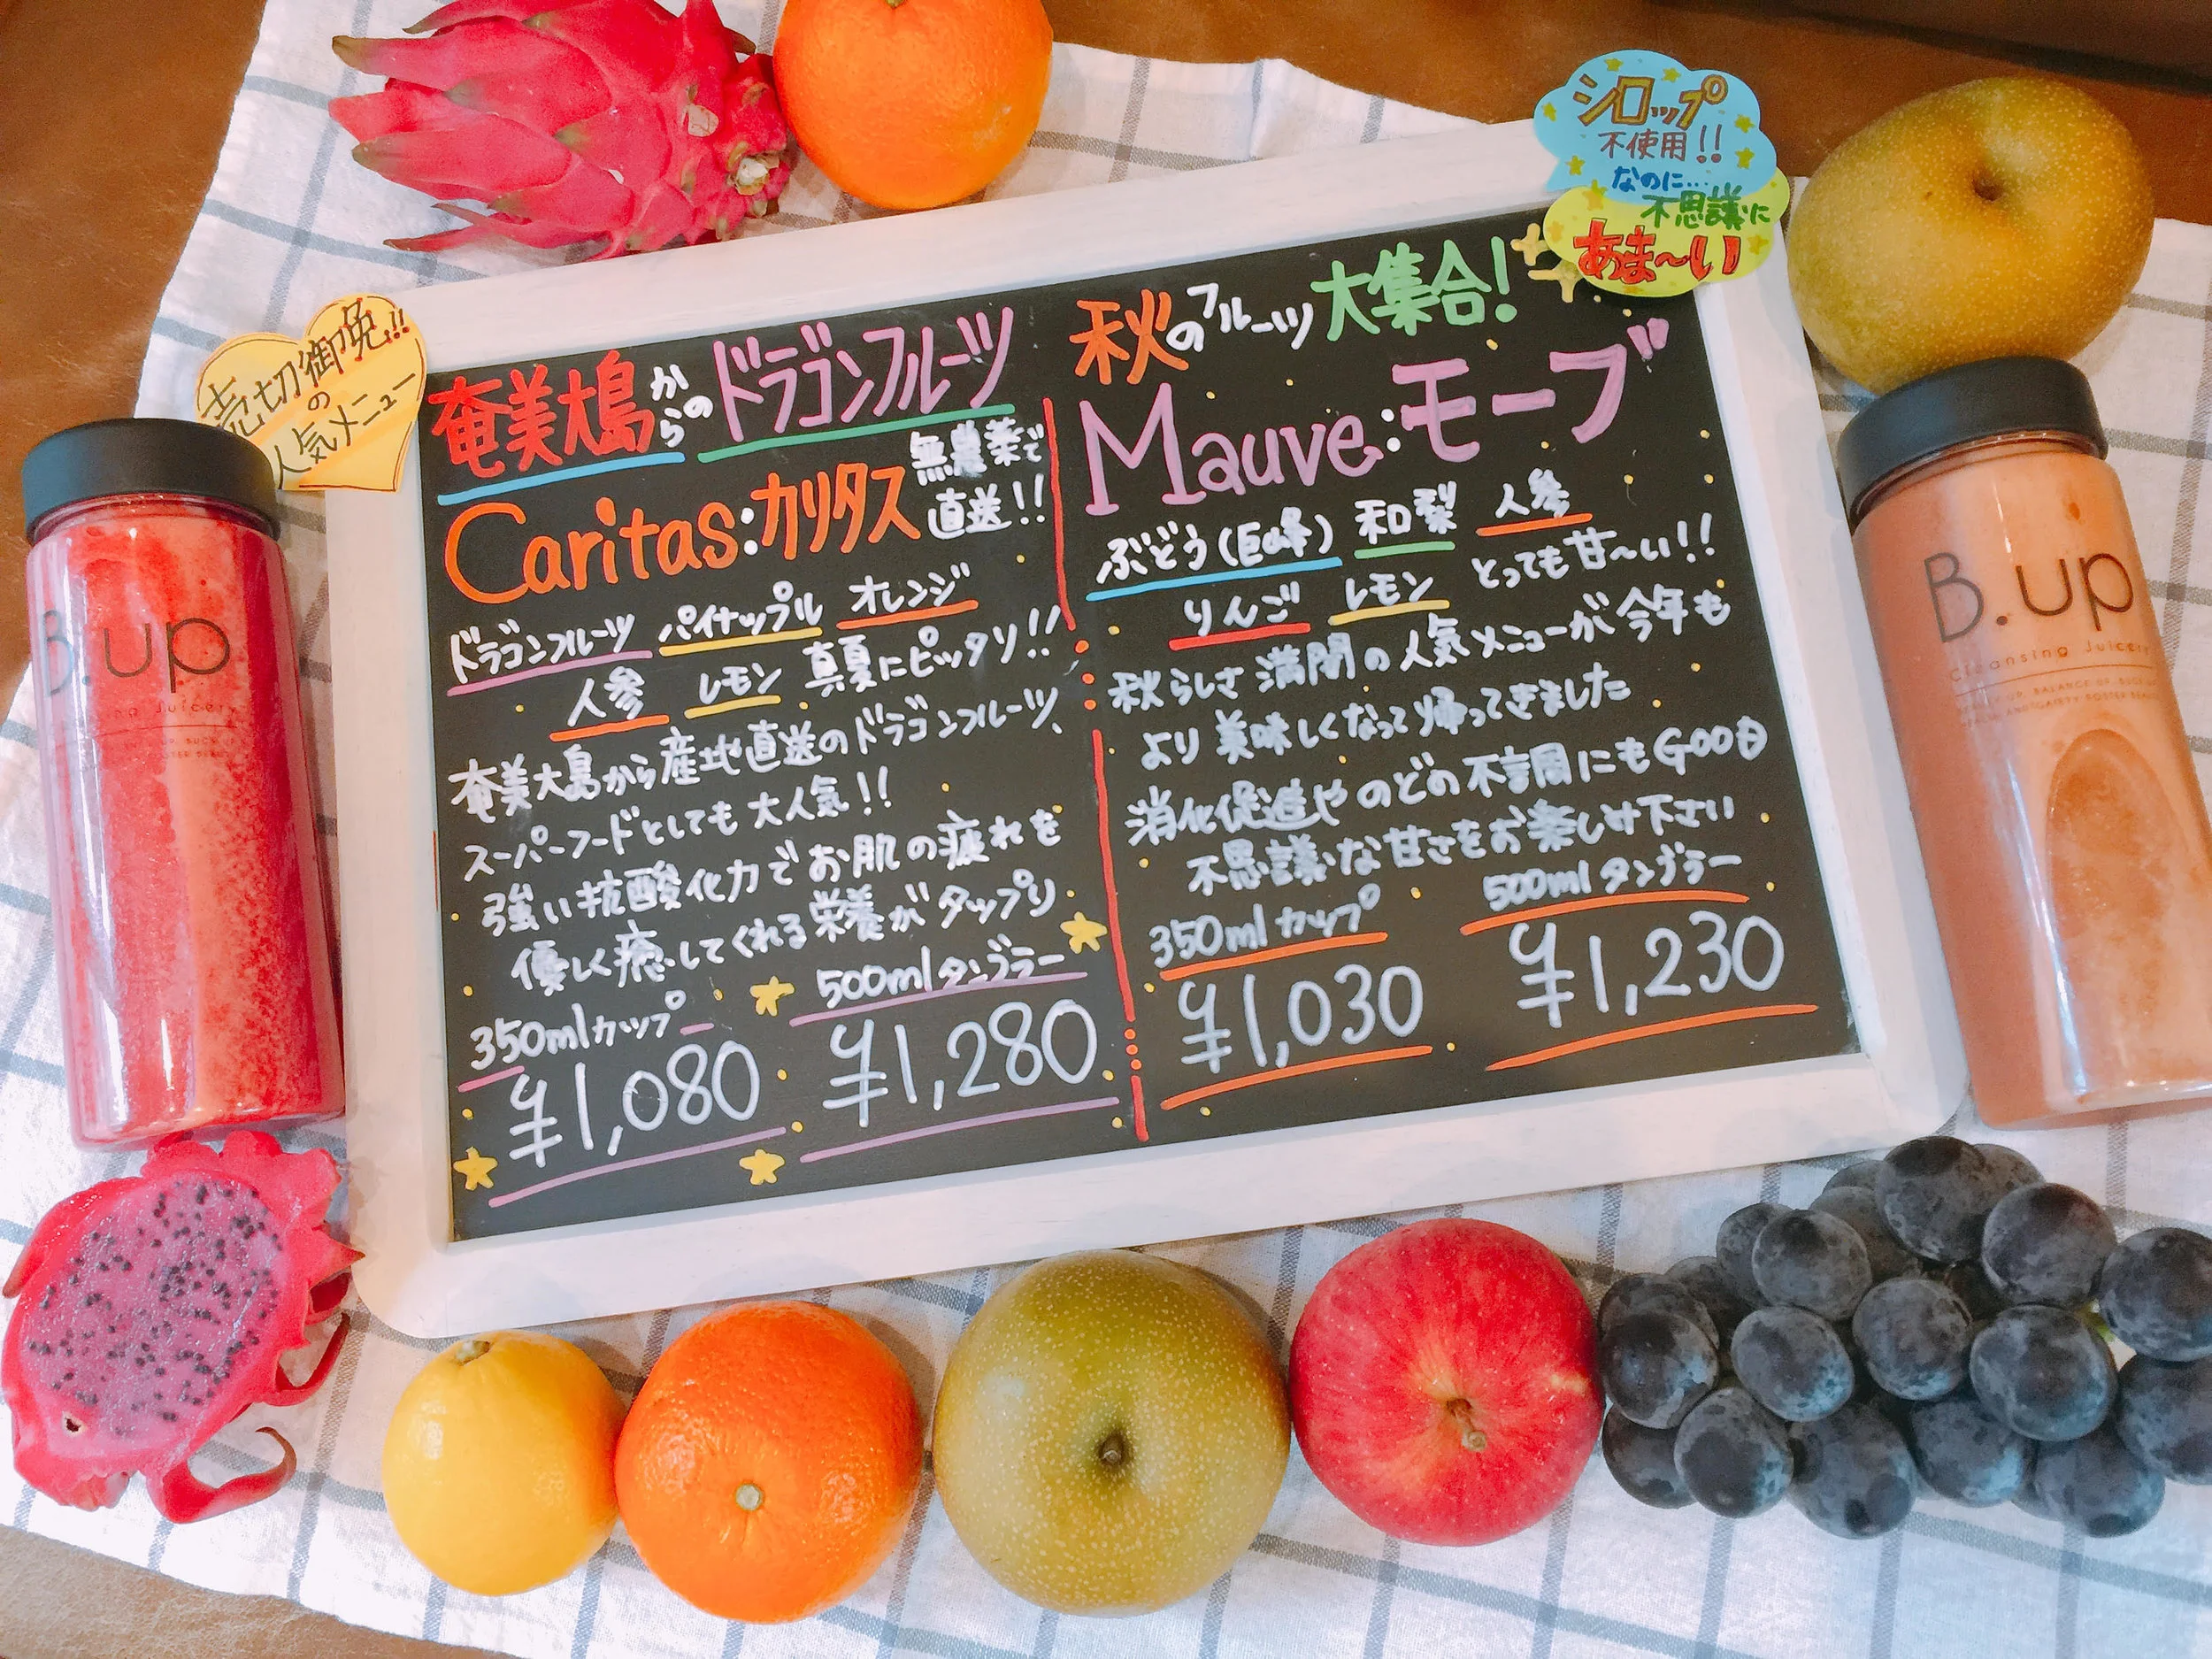 売切御免!!
の
人気メニュー
奄美大島からのドラゴンフルーツ
Caritas:カリタス
無農薬で
直送!!
ドラゴンフルーツ パイナップル オレンジ
人参 レモン 真夏にピッタリ!!
奄美大島から産地直送のドラゴンフルーツ、
スーパーフードとしても大人気!!
強い抗酸化力でお肌の疲れを
優しく癒してくれる栄養がタップリ
350mlカップ 500mlタンブラー
¥1,080 ¥1,280
シロップ
不使用!!
なのに...
不思議に
あま〜い
秋のフルーツ大集合!
Mauve:モーブ
ぶどう(巨峰) 和梨 人参
りんご レモン とっても甘〜い!!
秋らしさ満開の人気メニューが今年も
より美味しくなって帰ってきました
消化促進やのどの不調にもGOOD
不思議な甘さをお楽しみ下さい
350mlカップ 500mlタンブラー
¥1,030 ¥1,230
B.up
B.up
Cleansing Juicery